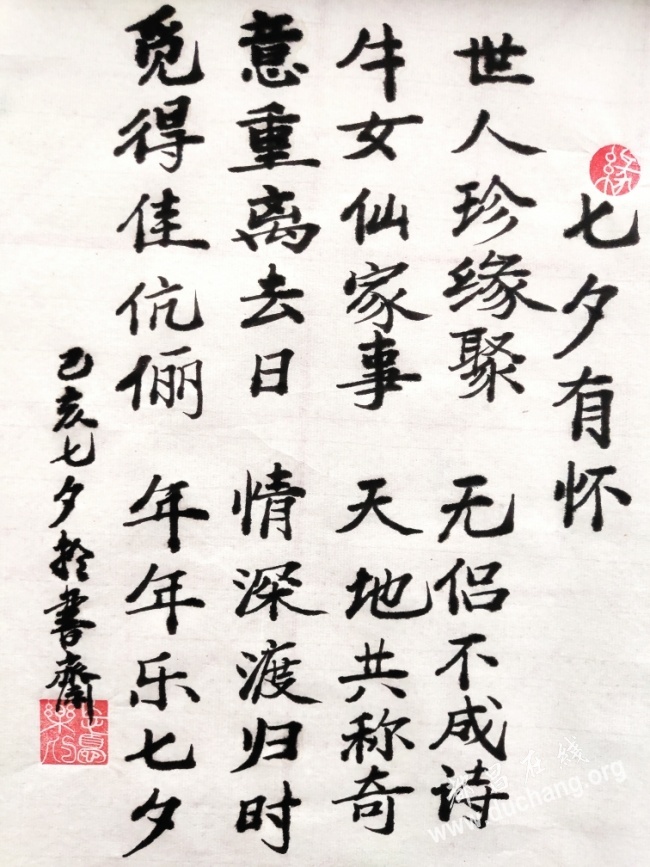 七夕有怀
世人珍缘聚 无侣不成诗
牛女仙家事 天地共称奇
意重离去日 情深渡归时
觅得佳伉俪 年年乐七夕
己亥七夕於書齋
都昌在线
www.duchang.org